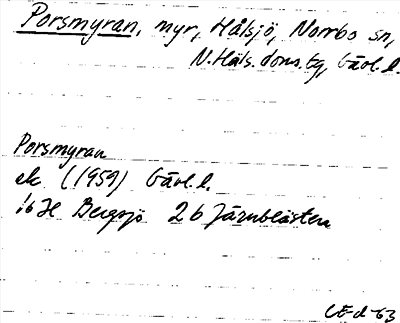 Porsmyran, myr, Hålsjö, Norrbo sn,
N. Häls. doms. tg, Gävl. l.
Porsmyran
ek (1959) Gävl. l.
16H Bergsjö 2b Järnblästen
CE-d -63